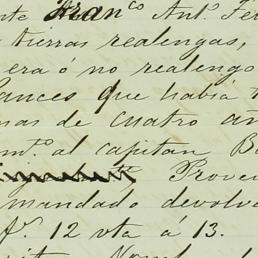 nte Franco Anto. Fe
tierras realengas,
era ó no realengo
ances que habia
nas de cuatro añ
mto. al capitan B
Prove
mandado devolv
fs. 12 vta á 13.